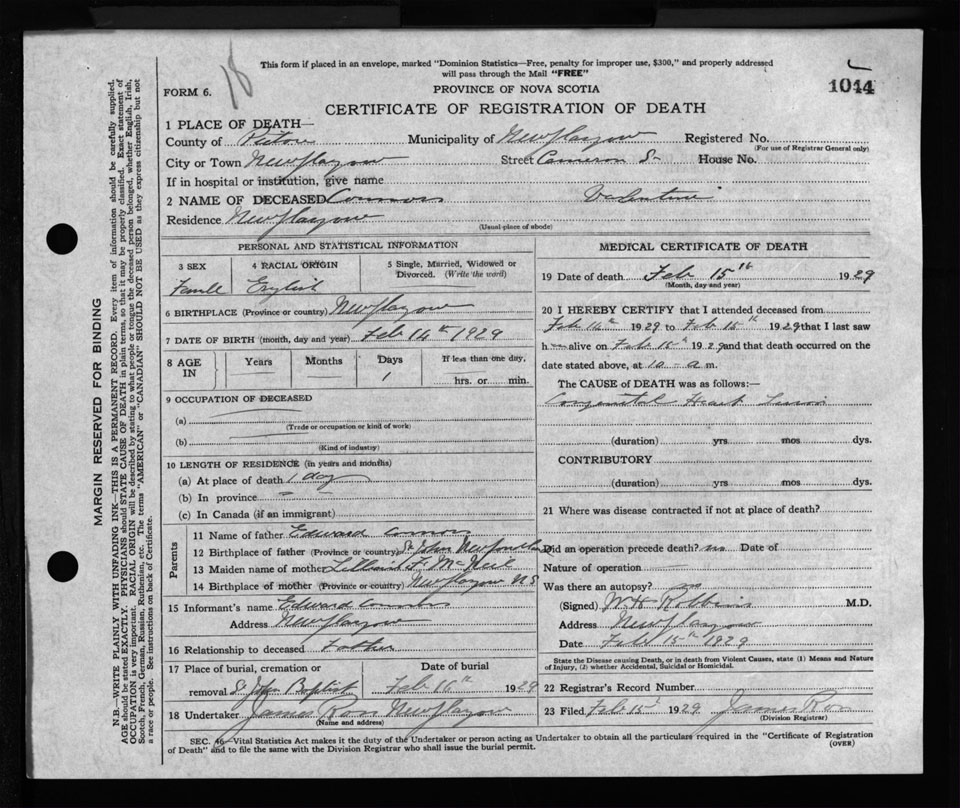 18
This form if placed in an envelope, marked "Dominion Statistics—Free, penalty for improper use, $300," and properly addressed
will pass through the Mail "FREE"
FORM 6.
PROVINCE OF NOVA SCOTIA
1044
CERTIFICATE OF REGISTRATION OF DEATH
1 PLACE OF DEATH—
County of Pictou Municipality of New Glasgow Registered No.
(For use of Registrar General only)
City or Town New Glasgow Street Cameron St House No.
If in hospital or institution, give name
2 NAME OF DECEASED Connors Valentine
Residence New Glasgow
(Usual place of abode)
PERSONAL AND STATISTICAL INFORMATION
3 SEX 4 RACIAL ORIGIN 5 Single, Married, Widowed or
Divorced. (Write the word)
Female English
6 BIRTHPLACE (Province or country) New Glasgow
7 DATE OF BIRTH (month, day and year) Feb 14th 1929
8 AGE IN Years Months Days If less than one day,
1 hrs. or min.
9 OCCUPATION OF DECEASED
(a)
(Trade or occupation or kind of work)
(b)
(Kind of industry)
10 LENGTH OF RESIDENCE (in years and months)
(a) At place of death 1 day
(b) In province
(c) In Canada (if an immigrant)
Parents
11 Name of father Edward Connors
12 Birthplace of father (Province or country) St John Newfoundland
13 Maiden name of mother Lillian F. McNeil
14 Birthplace of mother (Province or country) New Glasgow NS
15 Informant's name Edward Connors
Address New Glasgow
16 Relationship to deceased Father
17 Place of burial, cremation or Date of burial
removal St John Baptist Feb 16th 1929
18 Undertaker James Ross New Glasgow
(Name and address)
MEDICAL CERTIFICATE OF DEATH
19 Date of death Feb 15th 1929
(Month, day and year)
20 I HEREBY CERTIFY that I attended deceased from
Feb 14th 1929 to Feb 15th 1929 that I last saw
h alive on Feb 15th 1929 and that death occurred on the
date stated above, at 10 a m.
The CAUSE of DEATH was as follows:—
Congenital Heart Lesion
(duration) yrs mos dys.
CONTRIBUTORY
(duration) yrs mos dys.
21 Where was disease contracted if not at place of death?
Did an operation precede death? no Date of
Nature of operation
Was there an autopsy? no
(Signed) W H Robbins M.D.
Address New Glasgow
Date Feb 15th 1929
State the Disease causing Death, or in death from Violent Causes, state (1) Means and Nature
of Injury, (2) whether Accidental, Suicidal or Homicidal.
22 Registrar's Record Number
23 Filed Feb 15th 1929 James Roy
(Division Registrar)
SEC. 46 Vital Statistics Act makes it the duty of the Undertaker or person acting as Undertaker to obtain all the particulars required in the "Certificate of Registration
of Death" and to file the same with the Division Registrar who shall issue the burial permit. (OVER)
MARGIN RESERVED FOR BINDING
N.B.—WRITE PLAINLY WITH UNFADING INK—THIS IS A PERMANENT RECORD. Every item of information should be carefully supplied.
AGE should be stated EXACTLY. PHYSICIANS should STATE CAUSE OF DEATH in plain terms, so that it may be properly classified. Exact statement of
OCCUPATION is very important. RACIAL ORIGIN will be described by stating to what people or tongue the deceased person belonged, whether English, Irish,
Scotch, French, German, Russian, Ruthenian, etc. The terms "AMERICAN" or "CANADIAN" SHOULD NOT BE USED as they express citizenship but not
a race or people. See instructions on back of Certificate.